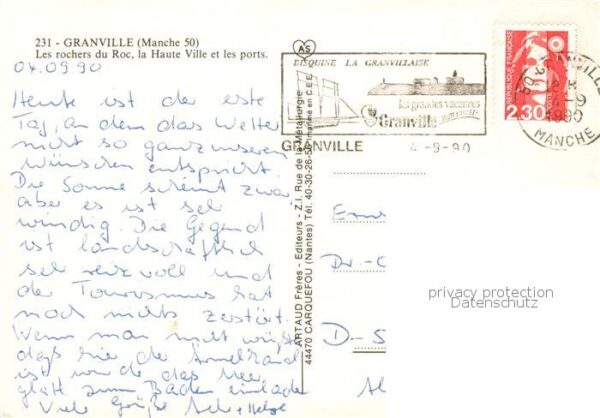 231 - GRANVILLE (Manche 50)
Les rochers du Roc, la Haute Ville et les ports.
04.09.90
Heute ist der erste
Tag, an dem das Wetter
nicht so ganz unseren
wünschen entspricht.
Die Sonne scheint zwar
aber es ist sehr
windig. Die Gegend
ist landschaftlich
sehr reizvoll und
der Tourismus hat
noch nichts zerstört.
Wenn man nicht wüßte
daß hier der Ärmelkanal
ist würde das Meer
glatt zum Baden einladen
Viele Grüße + Helge
ARTAUD Frères - Editeurs - Z.I. Rue de la Métallurgie
44470 CARQUEFOU (Nantes) Tél. 40-30-26-5
Imprimé en C.E.E.
AS
BISQUINE LA GRANVILLAISE
les grandes vacances
Granville
GRANVILLE
4-9-90
REPUBLIQUE FRANÇAISE
2,30
GRANVILLE
1990
MANCHE
Dr.-
D-S
privacy protection
Datenschutz